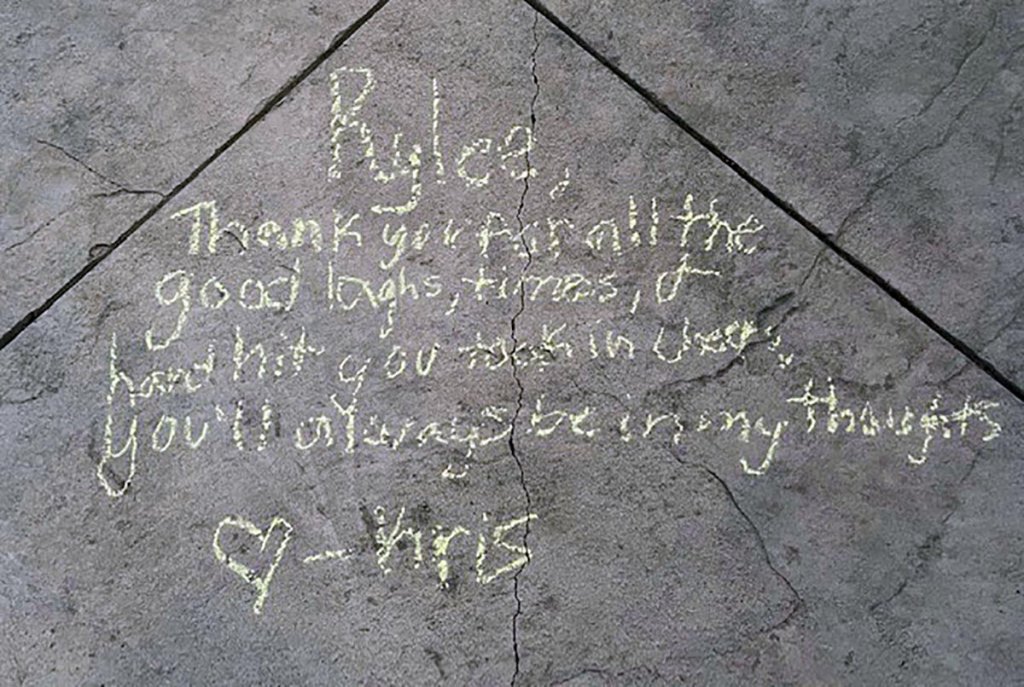 Rylee,
Thank you for all the
good laghs, times, &
hard hit you took in cheer,
You'll always be in my thoughts
♡ - Kris